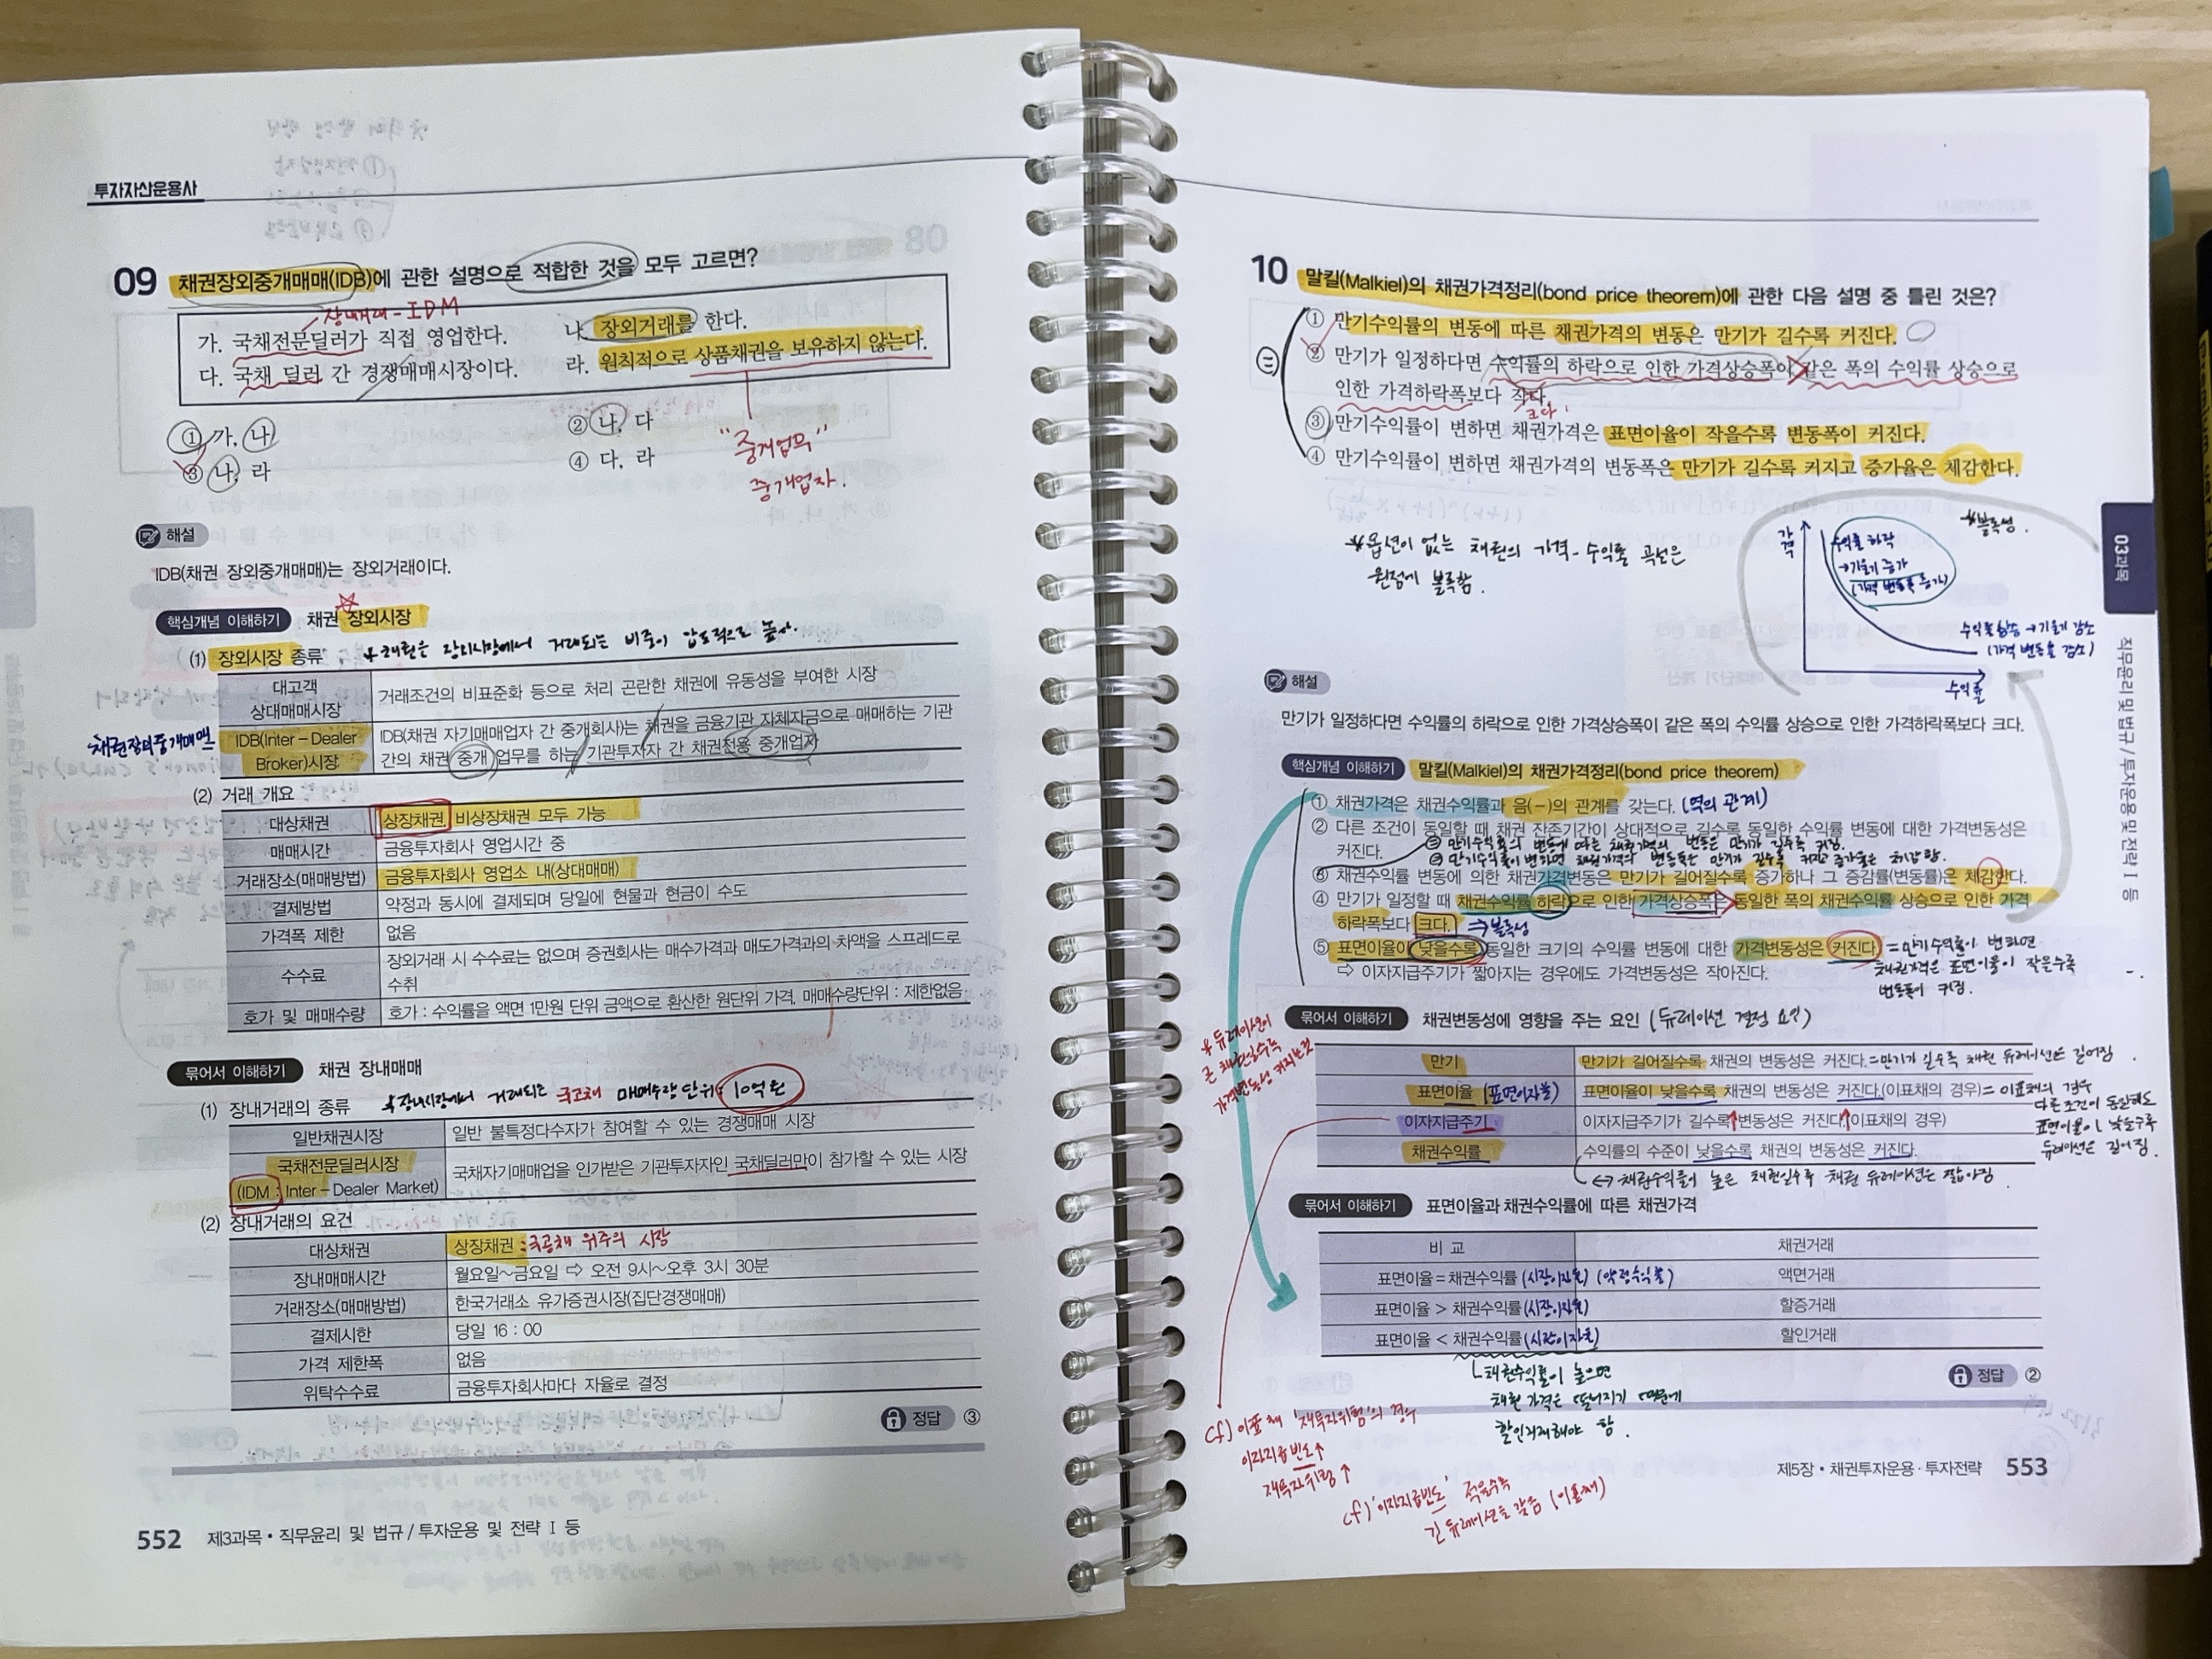 투자자산운용사
09 채권장외중개매매(IDB)에 관한 설명으로 적합한 것을 모두 고르면?
장내거래-IDM
가. 국채전문딜러가 직접 영업한다.
나. 장외거래를 한다.
다. 국채 딜러 간 경쟁매매시장이다.
라. 원칙적으로 상품채권을 보유하지 않는다.
① 가, 나
② 나, 다
③ 나, 라
④ 다, 라
"중개업무"
중개업자.
해설
IDB(채권 장외중개매매)는 장외거래이다.
핵심개념 이해하기 채권 장외시장
(1) 장외시장 종류 ; * 채권은 장외시장에서 거래되는 비중이 압도적으로 높다.
대고객 상대매매시장
거래조건의 비표준화 등으로 처리 곤란한 채권에 유동성을 부여한 시장
채권장외중개매매
IDB(Inter-Dealer
Broker)시장
IDB(채권 자기매매업자 간 중개회사)는 채권을 금융기관 자체자금으로 매매하는 기관
간의 채권 중개 업무를 하는 기관투자자 간 채권전용 중개업자
(2) 거래 개요
대상채권 상장채권, 비상장채권 모두 가능
매매시간 금융투자회사 영업시간 중
거래장소(매매방법) 금융투자회사 영업소 내(상대매매)
결제방법 약정과 동시에 결제되며 당일에 현물과 현금이 수도
가격폭 제한 없음
수수료 장외거래 시 수수료는 없으며 증권회사는 매수가격과 매도가격과의 차액을 스프레드로
수취
호가 및 매매수량 호가 : 수익률을 액면 1만원 단위 금액으로 환산한 원단위 가격, 매매수량단위 : 제한없음
묶어서 이해하기 채권 장내매매
* 장내시장에서 거래되는 국고채 매매수량단위: 10억원
(1) 장내거래의 종류
일반채권시장 일반 불특정다수자가 참여할 수 있는 경쟁매매 시장
국채전문딜러시장
(IDM : Inter-Dealer Market)
국채자기매매업을 인가받은 기관투자자인 국채딜러만이 참가할 수 있는 시장
(2) 장내거래의 요건
대상채권 상장채권 : 국공채 위주의 시장
장내매매시간 월요일~금요일 ⇨ 오전 9시~오후 3시 30분
거래장소(매매방법) 한국거래소 유가증권시장(집단경쟁매매)
결제시한 당일 16 : 00
가격 제한폭 없음
위탁수수료 금융투자회사마다 자율로 결정
정답 ③
552 제3과목 • 직무윤리 및 법규 / 투자운용 및 전략 Ⅰ 등
10 말킬(Malkiel)의 채권가격정리(bond price theorem)에 관한 다음 설명 중 틀린 것은?
① 만기수익률의 변동에 따른 채권가격의 변동은 만기가 길수록 커진다.
② 만기가 일정하다면 수익률의 하락으로 인한 가격상승폭이 같은 폭의 수익률 상승으로
인한 가격하락폭보다 작다.
크다.
③ 만기수익률이 변하면 채권가격은 표면이율이 작을수록 변동폭이 커진다.
④ 만기수익률이 변하면 채권가격의 변동폭은 만기가 길수록 커지고 증가율은 체감한다.
* 옵션이 없는 채권의 가격-수익률 곡선은
원점에 볼록함.
* 볼록성.
가격
수익률 하락
→기울기 증가
(가격 변동폭 증가)
수익률 상승→기울기 감소
(가격 변동율 감소)
수익률
해설
만기가 일정하다면 수익률의 하락으로 인한 가격상승폭이 같은 폭의 수익률 상승으로 인한 가격하락폭보다 크다.
핵심개념 이해하기 말킬(Malkiel)의 채권가격정리(bond price theorem)
① 채권가격은 채권수익률과 음(-)의 관계를 갖는다. (역의 관계)
② 다른 조건이 동일할 때 채권 잔존기간이 상대적으로 길수록 동일한 수익률 변동에 대한 가격변동성은
커진다.
= 만기수익률의 변동에 따른 채권가격의 변동은 만기가 길수록 커짐.
= 만기수익률이 변하면 채권가격의 변동폭은 만기가 길수록 커지고 증가율은 체감함.
③ 채권수익률 변동에 의한 채권가격변동은 만기가 길어질수록 증가하나 그 증감률(변동률)은 체감한다.
④ 만기가 일정할 때 채권수익률 하락으로 인한 가격상승폭은 동일한 폭의 채권수익률 상승으로 인한 가격
하락폭보다 크다. ⇒볼록성
⑤ 표면이율이 낮을수록 동일한 크기의 수익률 변동에 대한 가격변동성은 커진다. = 만기수익률이 변하면
채권가격은 표면이율이 작을수록
변동폭이 커짐.
⇨ 이자지급주기가 짧아지는 경우에도 가격변동성은 작아진다.
묶어서 이해하기 채권변동성에 영향을 주는 요인 (듀레이션 결정 요인)
* 듀레이션이
큰 채권일수록
가격변동성 커지는것
만기 만기가 길어질수록 채권의 변동성은 커진다. = 만기가 길수록 채권 듀레이션은 길어짐.
표면이율 (표면이자율) 표면이율이 낮을수록 채권의 변동성은 커진다.(이표채의 경우) = 이표채의 경우
다른조건이 동일해도
표면이율이 낮을수록
듀레이션은 길어짐.
이자지급주기 이자지급주기가 길수록 변동성은 커진다.(이표채의 경우)
채권수익률 수익률의 수준이 낮을수록 채권의 변동성은 커진다.
↔ 채권수익률이 높은 채권일수록 채권 듀레이션은 짧아짐.
묶어서 이해하기 표면이율과 채권수익률에 따른 채권가격
비 교 채권거래
표면이율 = 채권수익률 (시장이자율) (약정수익률) 액면거래
표면이율 > 채권수익률 (시장이자율) 할증거래
표면이율 < 채권수익률 (시장이자율) 할인거래
채권수익률이 높으면
채권 가격은 떨어지기 때문에
할인거래해야 함.
정답 ②
cf) 이표채 '재투자위험'의 경우
이자지급빈도↑
재투자위험↑
cf) '이자지급빈도' 적을수록
긴 듀레이션을 갖음 (이표채)
제5장 • 채권투자운용 · 투자전략 553
03과목
직무윤리 및 법규 / 투자운용 및 전략 Ⅰ 등